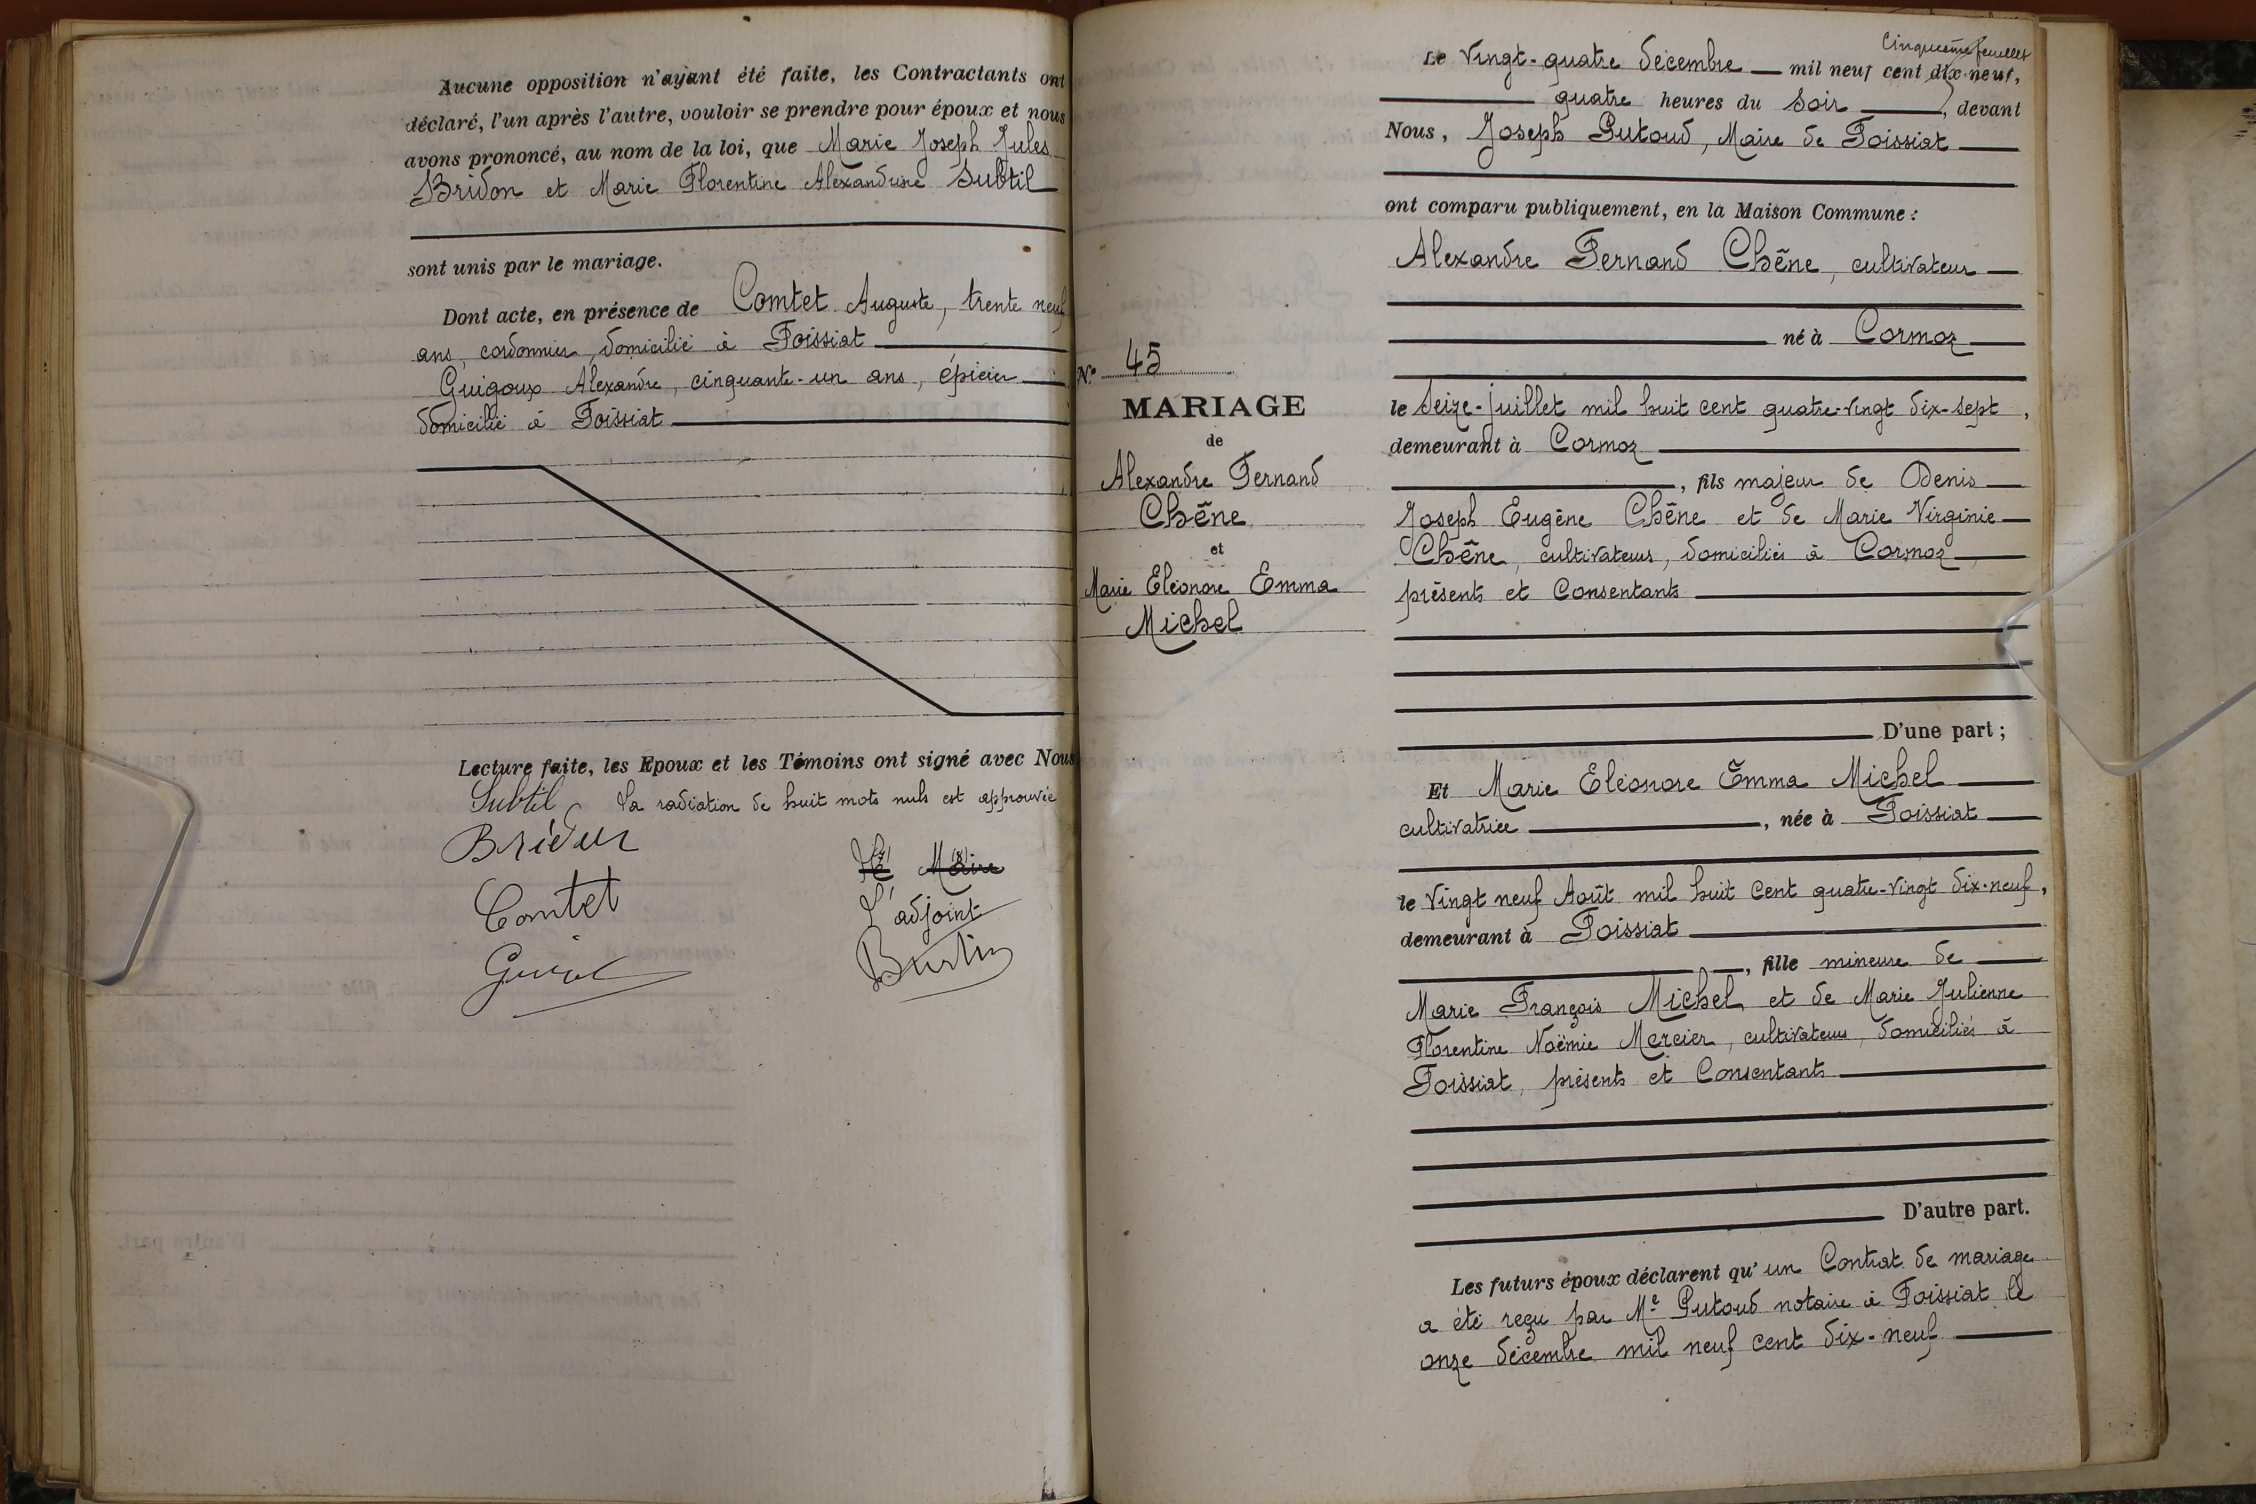 Aucune opposition n'ayant été faite, les Contractants ont
déclaré, l'un après l'autre, vouloir se prendre pour époux et nous
avons prononcé, au nom de la loi, que Marie Joseph Jules
Bridon et Marie Florentine Alexandrine Subtil
sont unis par le mariage.
Dont acte, en présence de Comtet Auguste, trente neuf
ans, cordonnier, domicilié à Foissiat
Guigoux Alexandre, cinquante-un ans, épicier
domicilié à Foissiat
Lecture faite, les Epoux et les Témoins ont signé avec Nous
Subtil La radiation de huit mots nuls est approuvée
Le Maire
Comtet
L'adjoint
Burtin
Cinquième feuillet
Le Vingt-quatre décembre mil neuf cent dix-neuf,
quatre heures du Soir, devant
Nous, Joseph Putoud, Maire de Foissiat
ont comparu publiquement, en la Maison Commune :
Alexandre Fernand Chêne, cultivateur
né à Cormoz
le Seize-juillet mil huit cent quatre-vingt dix-sept,
demeurant à Cormoz
, fils majeur de Denis
Joseph Eugène Chêne et de Marie Virginie
Chêne, cultivateurs, domiciliés à Cormoz,
présents et Consentants
D'une part ;
N° 45
MARIAGE
de
Alexandre Fernand
Chêne
et
Marie Eléonore Emma
Michel
Et Marie Eléonore Emma Michel
cultivatrice, née à Foissiat
le Vingt neuf Août mil huit cent quatre-vingt dix-neuf,
demeurant à Foissiat
, fille mineure de
Marie François Michel et de Marie Julienne
Florentine Noëmie Mercier, cultivateurs, domiciliés à
Foissiat, présents et Consentants
D'autre part.
Les futurs époux déclarent qu'un Contrat de mariage
a été reçu par Me Putoud notaire à Foissiat le
onze décembre mil neuf cent dix-neuf